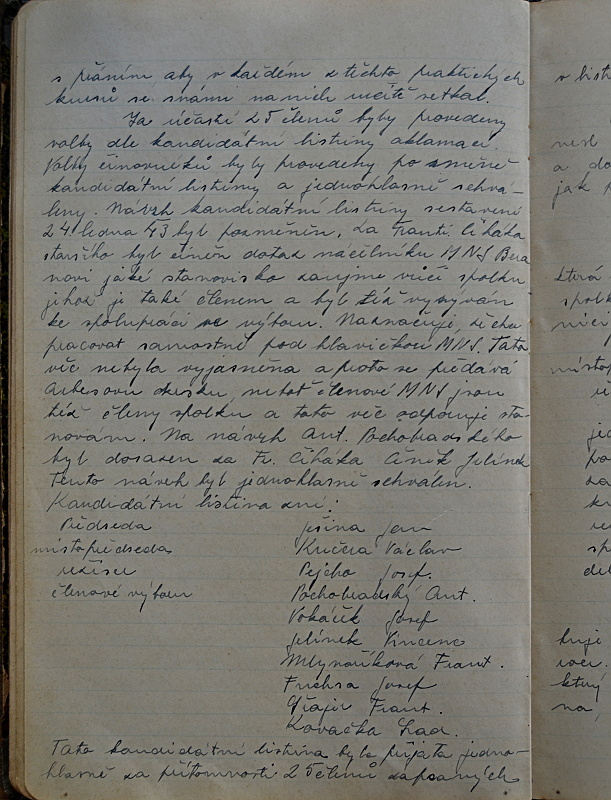 s přáním aby v každém z těchto praktických
kursů se známi na nich určitě setkal.
Za účasti 25 členů byly provedeny
volby dle kandidátní listiny aklamací.
Volby činovníků byly provedeny po změně
kandidátní listiny a jednohlasně schvá-
leny. Návrh kandidátní listiny sestavené
24. ledna 43 byl pozměněn, za Frant. Ciháka
staršího byl činěn dotaz náčelníku MNS Bera
novi jaké stanovisko zaujme vůči spolku
jehož je také členem a byl též vyzýván
ke spolupráci ve výboru. Naznačuje, že chce
pracovat samostně pod hlavičkou MNS. Tato
věc nebyla vyjasněna a proto se předává
Arbesovu okrsku, neboť členové MNS jsou
též členy spolku a tato věc odporuje sta-
novám. Na návrh Ant. Pochobradského
byl dosazen za Fr. Ciháka Čeněk Jelínek
Tento návrh byl jednohlasně schválen.
Kandidátní listina zní:
Předseda Ješina Jan
místopředseda Kučera Václav
režiser Pejcho Josef.
členové výboru Pochobradský Ant.
Voháček Josef
Jelínek Vincenc
Mlynaříková Frant.
Fuchsa Josef
Frant.
Kovačka Lad.
Tato kandidátní listina byla přijata jedno-
hlasně za přítomnosti 25 členů zapsaných
v list
a do
jak
která
spolk
místop
je
po
sp
del
tuje
který
na